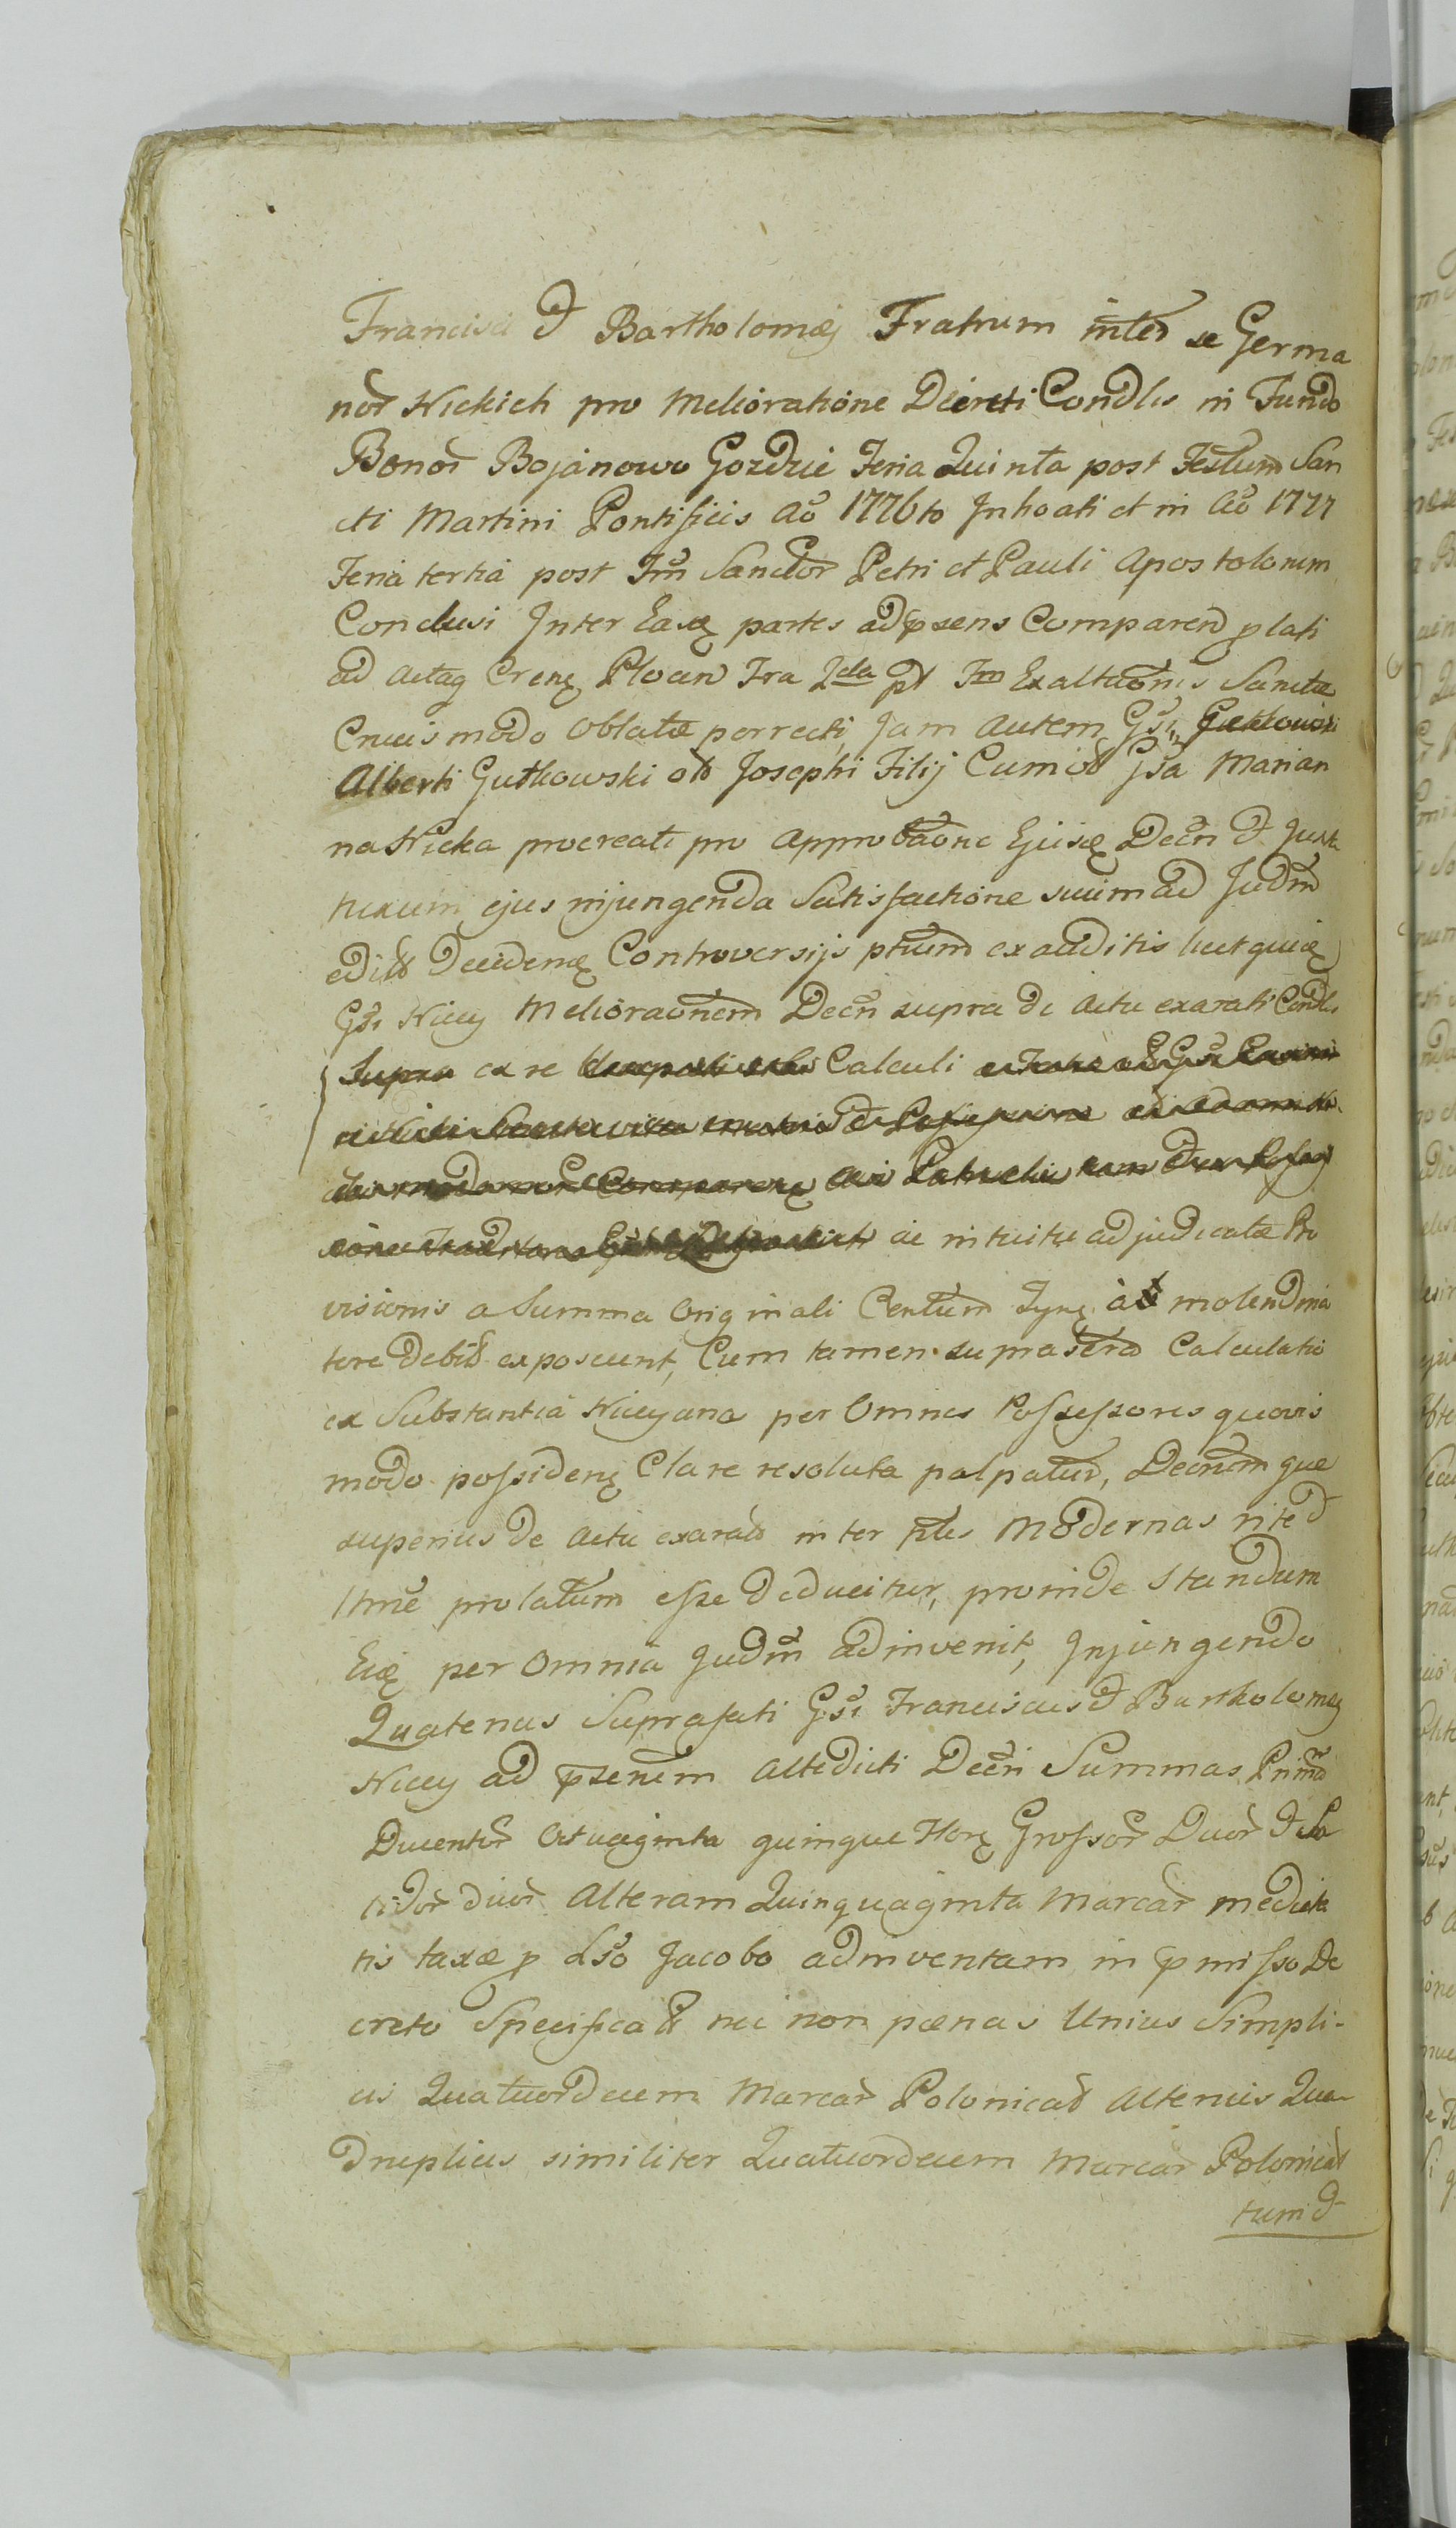 Francisci & Bartholomęj Fratrum inter se Germa
nor Nickich pro Melioratione Decreti Condlis in Fundo
Bonor Bojanowo Gozdzie Feria Quinta post Festum San
cti Martini Pontificis Ao 1776to Inhoati et in Ao 1777
Feria tertia post Fm Sanctor Petri et Pauli Apostolorum
Conclusi Inter Easę partes ad psens Comparend plati
ad Actaq Crenę Plocen Fra 2da pt Fm Exaltaonis Sanctæ
Crucis modo oblatæ porrecti, Jam autem Gsi Gutkowski
Alberti Gutkowski olb Josephi Filij Cum ob Gsa Marian
na Nicka procreati pro Approbaone Ejusę Decri & Juxta
nexum ejus injungenda Satisfactione suum ad Judm
Decidenę Controversijs ptium exauditis licet quię
Gsi Nicej Melioraonem Decri supra de actu exarati Condlis
Supra ex re Calculi
ac intuitu adjudicatæ Pro
visionis a Summa Originali Centum Tynę à molendina
tore debit exposcunt, Cum tamen suprascra Calculatio
ex Substantiâ Niceyana per Omnes Possessores quovis
modo possidenę Clare resoluta palpatur, Decrumque
superius de actu exarato inter ptes Modernas rite &
ltime prolatum esse deducitur, proinde Standum
Eię per Omnia Judm adinvenit, Injungendo
Quatenus Suprafati Gsi Franciscus & Bartholomęj
Nicey ad psenem altedicti Decri Summas Primo
Ducentor Octuaginta quinque Florę Grossor Duor & So
lidor duor Alteram Quinquaginta Marcar medieta
tis taxæ p Lso Jacobo adinventam in pmisso De
creto Specificat nec non pænas Unius Simpli-
cis Quatuordecem Marcar Polonical Alterius Qua-
druplicis similiter Quatuordecem Marcar Polonical
tum &